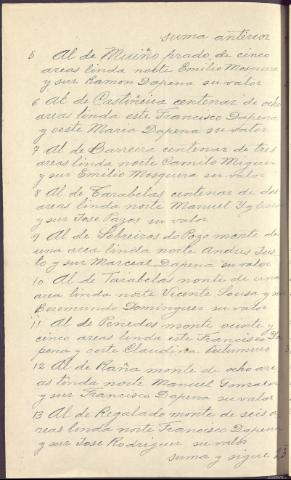 suma anterior
5 Al de Muiño prado, de cinco
areas linda norte Emilio Mosquera
y sur Ramon Dapena su valor
6 Al de Castiñeira centenar de ocho
areas linda este Francisco Dapena
y oeste Maria Dapena su valor
7 Al de Barreira centenar de tres
areas linda norte Camilo Miguez
y sur Emilio Mosquera su valor
8 Al de Tarabelas centenar de dos
areas linda norte Manuel Yglesias
y sur Jose Pazos su valor
9 Al de Sobreiras do Pozo monte de
una area linda norte Andres
y sur Marcial Dapena su valor
10 Al de Tarabelas monte de una
area linda norte Vicente Sousa y sur
Bermundo Dominguez su valor
11 Al de Penedos monte veinte y
cinco areas linda este Francisco Da
pena y oeste Claudina
12 Al de Raña monte de ocho are
as linda norte Manuel Gonzalez
y sur Francisco Dapena su valor
13 Al de Regalado monte de seis a
reas linda norte Francisco Dapena
y sur Jose Rodriguez su valor
suma y sigue